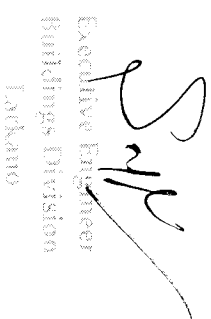 Executive Engineer
Buildings Division
Larkano